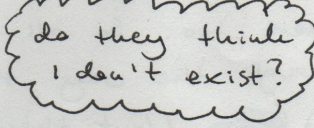 do they think
I don't exist?